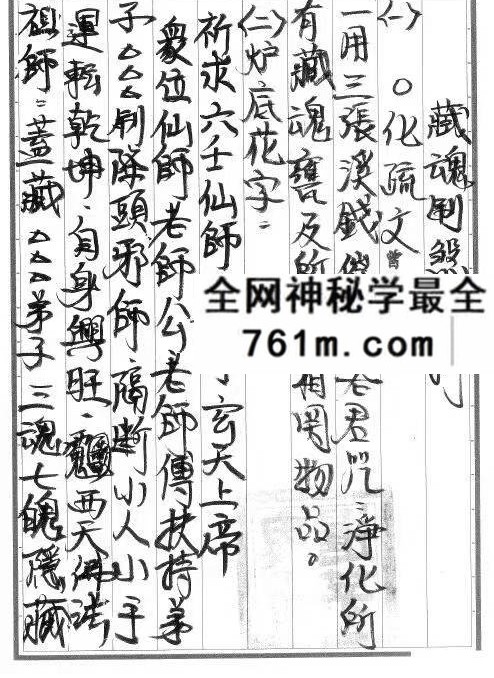 藏魂制煞
㈠ ○化疏文
一用三張溪錢 老君咒.淨化所
有藏魂甕及所 相関物品。
㈡炉底花字:
祈求六壬仙師 玄天上帝
衆位仙師老師公老師傅扶持弟
子△△△制除頭邪師.隔断小人小手
運転乾坤.自身興旺. 西天佛諸
祖師:蓋藏△△△弟子三魂七魄.隠藏
全网神秘学最全
761m.com